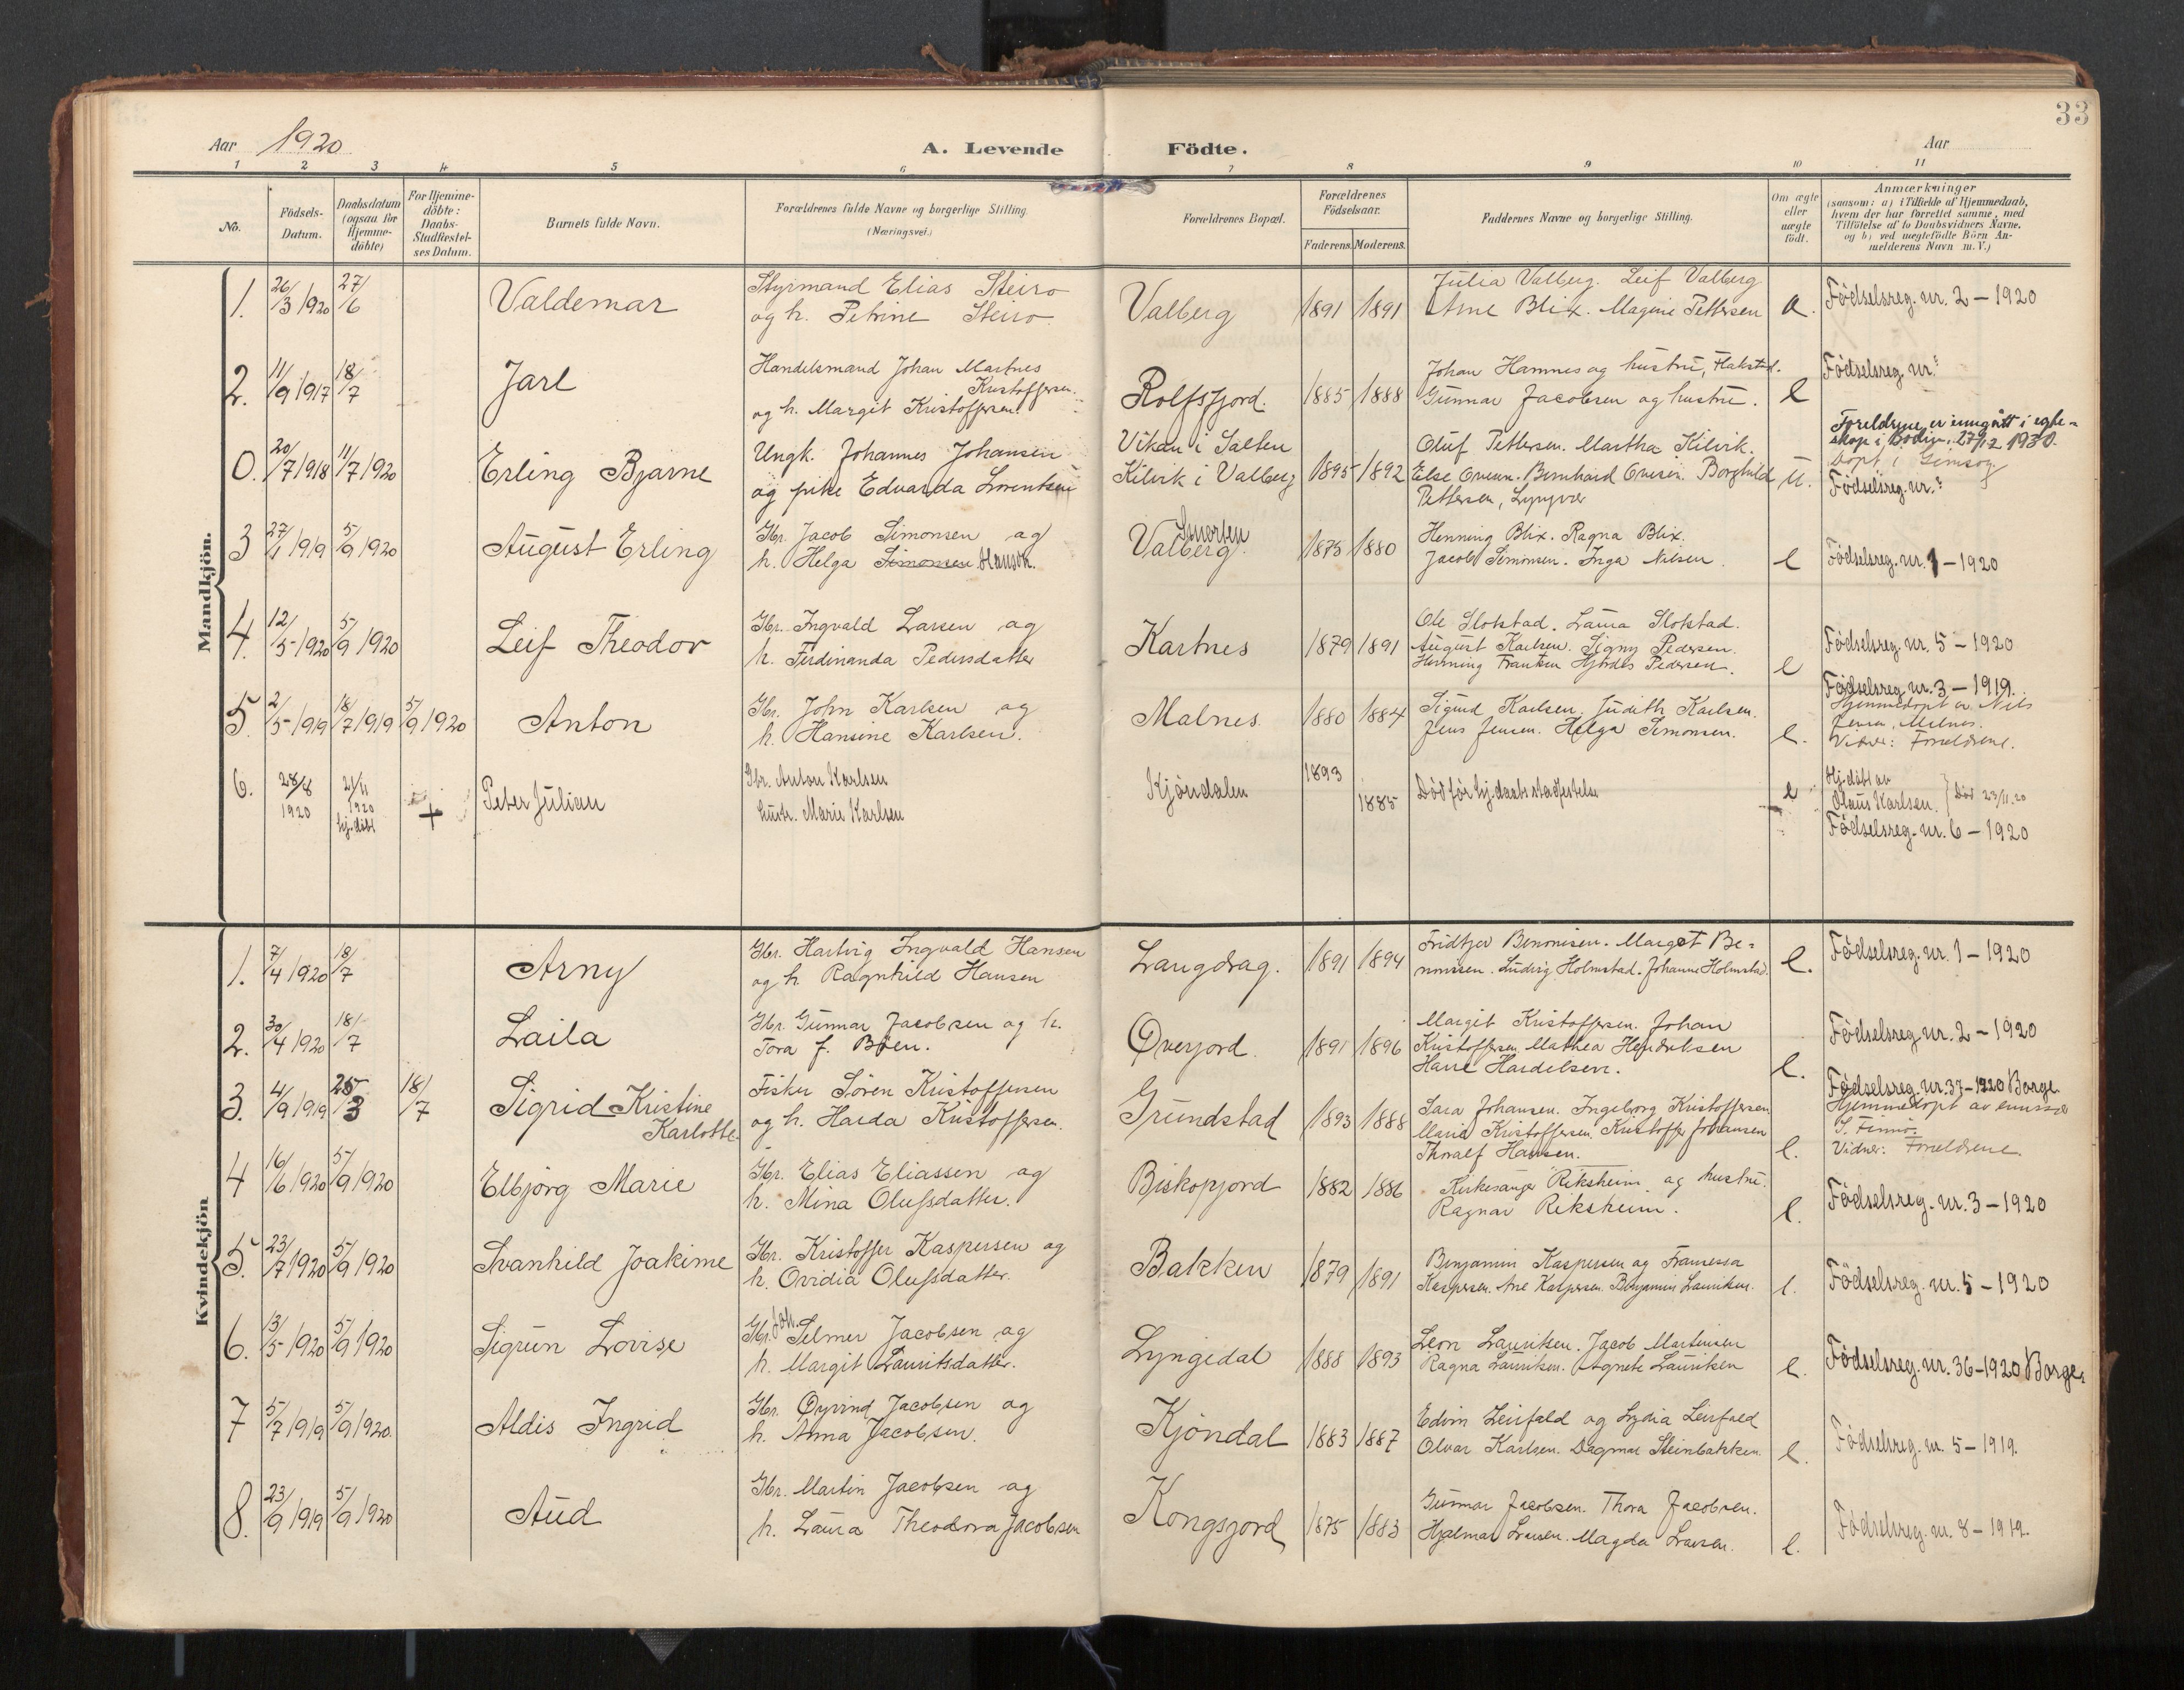 33
Aar 1920
A. Levende Födte.
Aar
1 2 3 4 5 6 7 8 9 10 11
No.
Födsels-
Datum.
Daabsdatum
(ogsaa for
Hjemme-
döbte)
For Hjemme-
döbte:
Daabs-
Stadfæstel-
ses Datum.
Barnets fulde Navn.
Forældrenes fulde Navne og borgerlige Stilling
(Næringsvei.)
Forældrenes Bopæl.
Forældrenes
Födselsaar.
Faderens. Moderens.
Faddernes Navne og borgerlige Stilling.
Om ægte
eller
uægte
födt.
Anmærkninger
(saasom: a) i Tilfælde af Hjemmedaab,
hvem der har forrettet samme, med
Tilföielse af to Daabsvidners Navne,
og b) ved uægtefödte Börn An-
melderens Navn m. V.)
Mandkjön.
1. 26/3 1920 27/6 Valdemar
Styrmand Elias Steiro
og h. Petrine Steiro
Valberg 1891 1891
Julia Valberg. Leif Valberg
Arne Blix. Magine Pettersen
Födselsreg. nr. 2 - 1920
2. 11/9 1917 18/7 Jarl
Handelsmand Johan Martnes
Kristoffersen
og h. Margit Kristoffersen.
Rolfsfjord. 1885 1888
Johan Hamnes og hustru, Flakstad.
Gunnar Jacobsen og hustru.
e
Födselsreg. nr:
0. 20/7 1918 11/7 1920 Erling Bjarne
Ungk. Johannes Johansen
og pike Edvarda Lorentsen
Vikan i Salten
Kilvik i Valberg 1895 1892
Oluf Pettersen. Martha Kilvik.
Else Ovesen. Bernhard Ovesen. Borghild
Pettersen, Lyngvær
u.
Foreldrene er inngått i egte-
skap i Bodin, 27/12 1930.
Döpt i Gimsøy
Födselsreg. nr:
3 27/1 1919 5/9 1920 August Erling
Gbr. Jacob Simonsen og
h. Helga Simonsen Hanson.
Smorten
Valberg. 1875 1880
Henning Blix. Ragna Blix.
Jacob Simonsen. Inga Nilsen.
e
Födselsreg. nr. 1 - 1920
4. 12/5 1920 5/9 1920 Leif Theodor
Gbr. Ingvald Larsen og
h. Ferdinanda Pedersdatter
Kartnes 1879 1891
Ole Slotstad. Laura Slotstad.
August Karlsen. Signy Pedersen.
Henning Frantsen Hjördis Pedersen.
e
Födselsreg. nr. 5 - 1920
5. 2/5 1919 18/7 1919 5/9 1920 Anton
Gbr. John Karlsen og
h. Hansine Karlsen.
Malnes 1880 1884
Sigurd Karlsen. Judith Karlsen.
Jens Jensen. Helga Simonsen.
e.
Födselsreg. nr. 3 - 1919.
Hjemmedöpt av Nils
Jensen, Malnes.
Vidner: Forældrene.
6. 28/8 1920 21/11 1920 hj. döbt + Peter Julian
Gbr. Anton Karlsen
Hustr. Marie Karlsen
Kjöndalen 1893 1885
Död för hj. daabs stadfestelse
e
Hj. döbt av
Olaus Karlsen. } Död 23/11.20
Födselsreg. nr. 6 - 1920
Kvindekjön
1. 7/4 1920 18/7 Arny
Gbr. Hartvig Ingvald Hansen
og h. Ragnhild Hansen
Langdrag. 1891 1894
Fridtjov Benonisen. Margot Be-
nonisen. Ludvig Holmstad. Johanne Holmstad.
e.
Födselsreg. nr. 1 - 1920
2. 30/4 1920 18/7 Laila
Gbr. Gunnar Jacobsen og h.
Tora f. Böen.
Øverjord. 1891 1896
Margit Kristoffersen. Johan
Kristoffersen. Mathea Hendriksen
e.
Födselsreg. nr. 2 - 1920
3. 4/9 1919 25/3 18/7 Sigrid Kristine
Karlotte
Fisker Sören Kristoffersen
og h. Harda Kristoffersen.
Grundstad 1893 1888
Sara Johansen. Ingeborg Kristoffersen
Marie Kristoffersen. Kristoffer Johansen
Thoralf Hansen.
e.
Födselsreg. nr. 37 - 1920 Borge
Hjemmedöpt av emissær
Vidner: Forældrene
4 16/6 1920 5/9 1920 Elbjörg Marie
Gbr. Elias Eliassen og
h. Mina Olufsdatter.
Biskopjord 1882 1886
Kirkesanger Riksheim og hustru.
Ragnar Riksheim.
e.
Födselsreg. nr. 3 - 1920
5. 23/7 1920 5/9 1920 Svanhild Joakime
Gbr. Kristoffer Kaspersen og
h. Ovidia Olufsdatter.
Bakken 1879 1891
Benjamin Kaspersen og Fransessa
Kaspersen. Are Kaspersen. Benjamin Lauritsen.
e.
Födselsreg. nr. 5 - 1920
6. 13/5 1920 5/9 1920 Sigrun Lovise
Joh.
Gbr. Selmer Jacobsen og
h. Margit Lauritsdatter.
Lyngedal 1888 1893
Leon Lauritsen. Jacob Martinsen
Ragna Lauritsen. Agnete Lauritsen
e.
Födselsreg. nr. 36 - 1920 Borge.
7 5/7 1919 5/9 1920. Aldis Ingrid
Gbr. Øyvind Jacobsen og
h. Anna Jacobsen.
Kjöndal 1883 1887
Edvin Leirfald og Lydia Leirfald
Olvar Karlsen. Dagmar Steinbakken.
e.
Födselsreg. nr. 5 - 1919.
8. 23/9 1919 5/9 1920 Aud
Gbr. Martin Jacobsen og
h. Laura Theodora Jacobsen
Kongsjord 1875 1883
Gunnar Jacobsen. Thora Jacobsen.
Hjalmar Larsen. Magda Larsen.
e.
Födselsreg. nr. 8 - 1919.